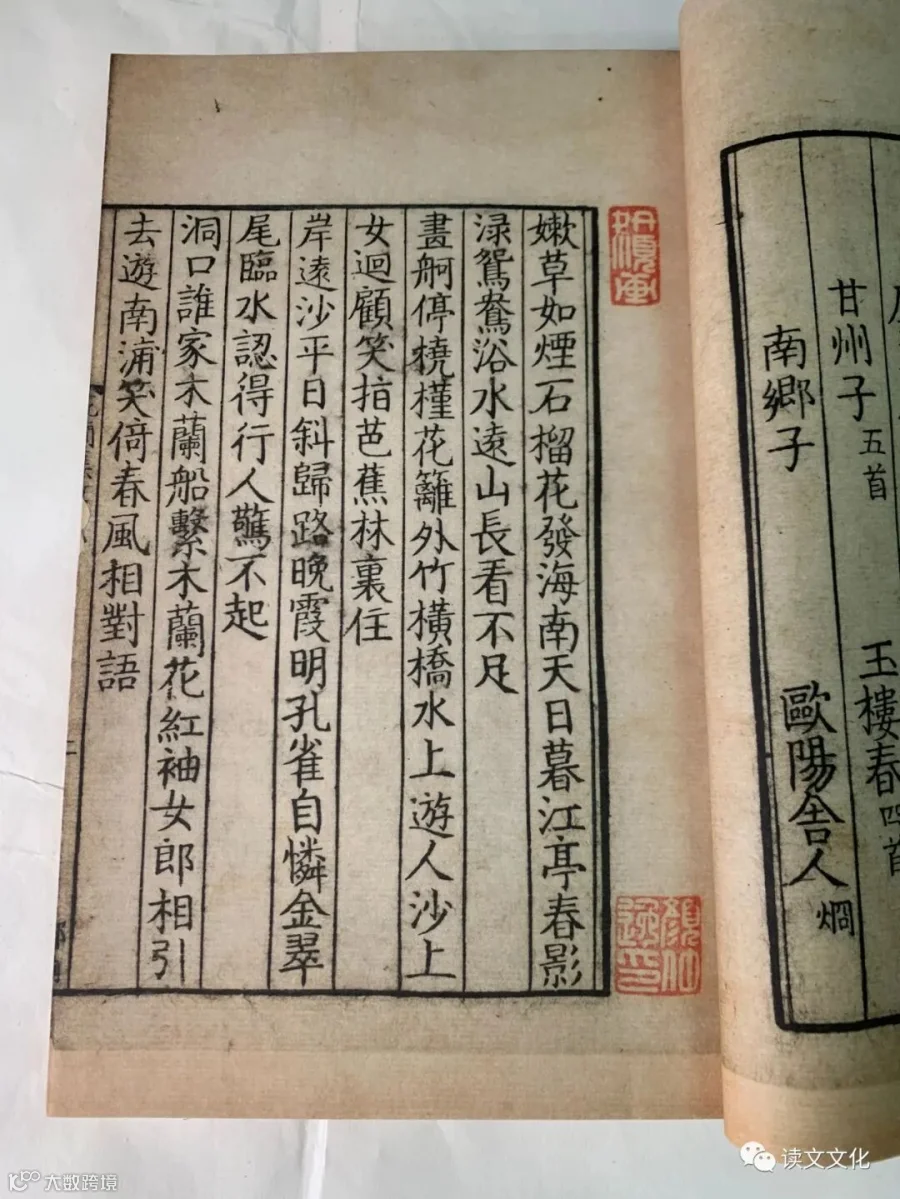 甘州子五首 玉樓春四首
南鄉子 歐陽舍人烱
嫩草如煙石榴花發海南天日暮江亭春影
渌鴛鴦浴水遠山長看不足
畫舸停橈槿花籬外竹橫橋水上遊人沙上
女迴顧笑指芭蕉林裏住
岸遠沙平日斜歸路晚霞明孔雀自憐金翠
尾臨水認得行人驚不起
洞口誰家木蘭船繫木蘭花紅袖女郎相引
去遊南浦笑倚春風相對語
顏仲逸印
读文文化
大数跨境